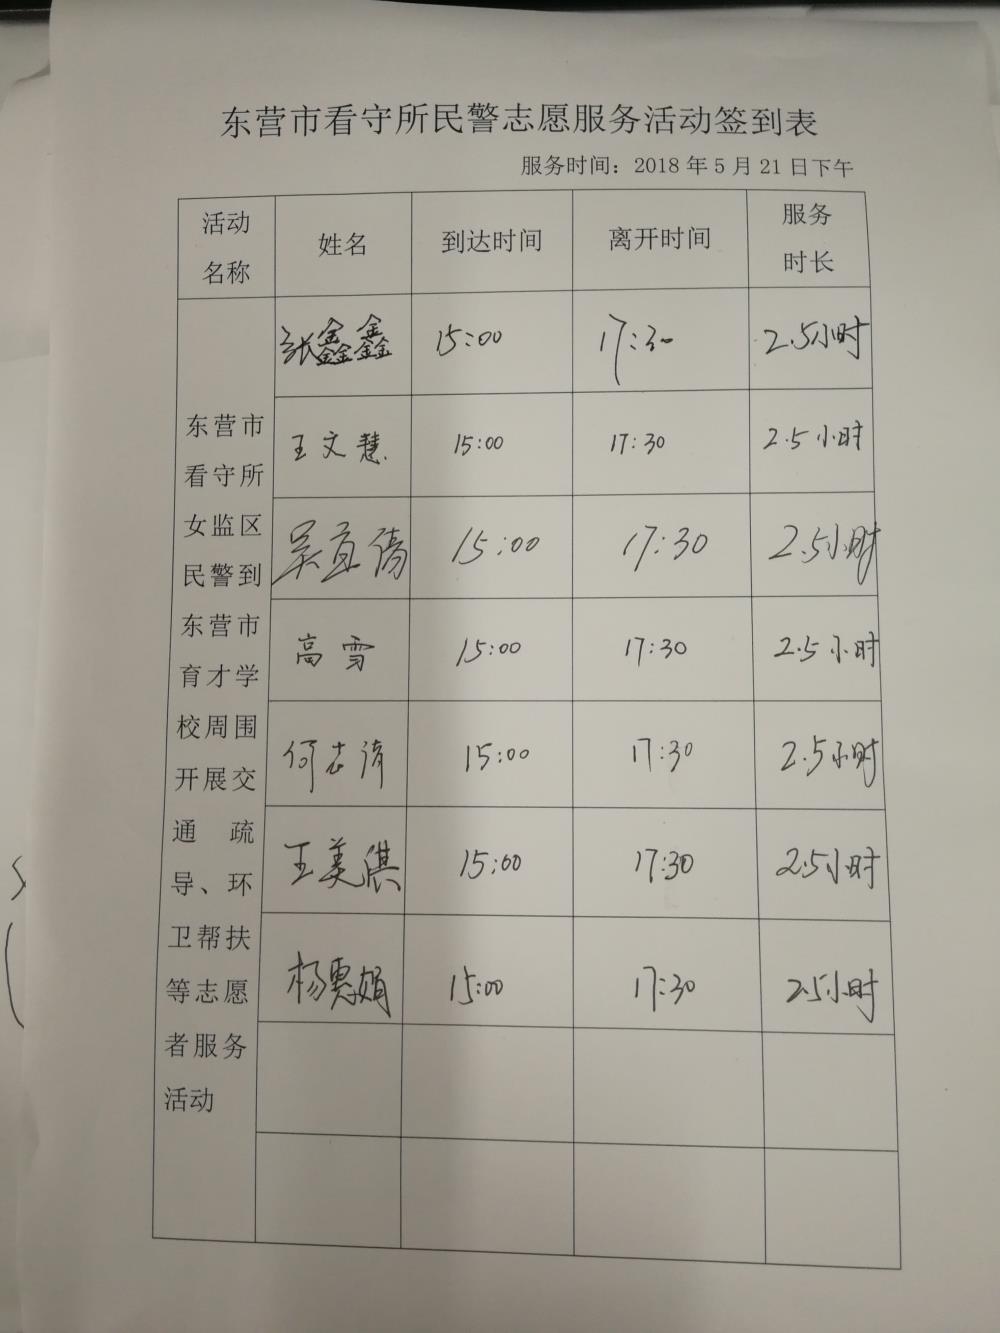 东营市看守所民警志愿服务活动签到表
服务时间：2018年5月21日下午
活动名称 姓名 到达时间 离开时间 服务时长
东营市
看守所
女监区
民警到
东营市
育才学
校周围
开展交
通疏
导、环
卫帮扶
等志愿
者服务
活动
张鑫鑫 15:00 17:30 2.5小时
王文慧 15:00 17:30 2.5小时
吴宜倩 15:00 17:30 2.5小时
高雪 15:00 17:30 2.5小时
何志清 15:00 17:30 2.5小时
王美淇 15:00 17:30 2.5小时
杨惠娟 15:00 17:30 2.5小时